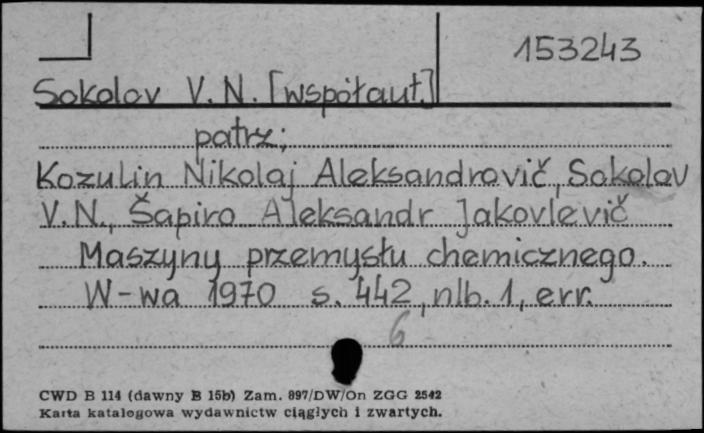 153243
Sokolov V. N. [współaut.]
patrz;
Kozulin Nikolaj Aleksandrovič, Sokolov
V. N., Šapiro Aleksandr Jakovlevič
Maszyny przemysłu chemicznego.
W-wa 1970 s. 442, nlb. 1, err.
6
CWD B 114 (dawny B 15b) Zam. 897/DW/On ZGG 2542
Karta katalogowa wydawnictw ciągłych i zwartych.